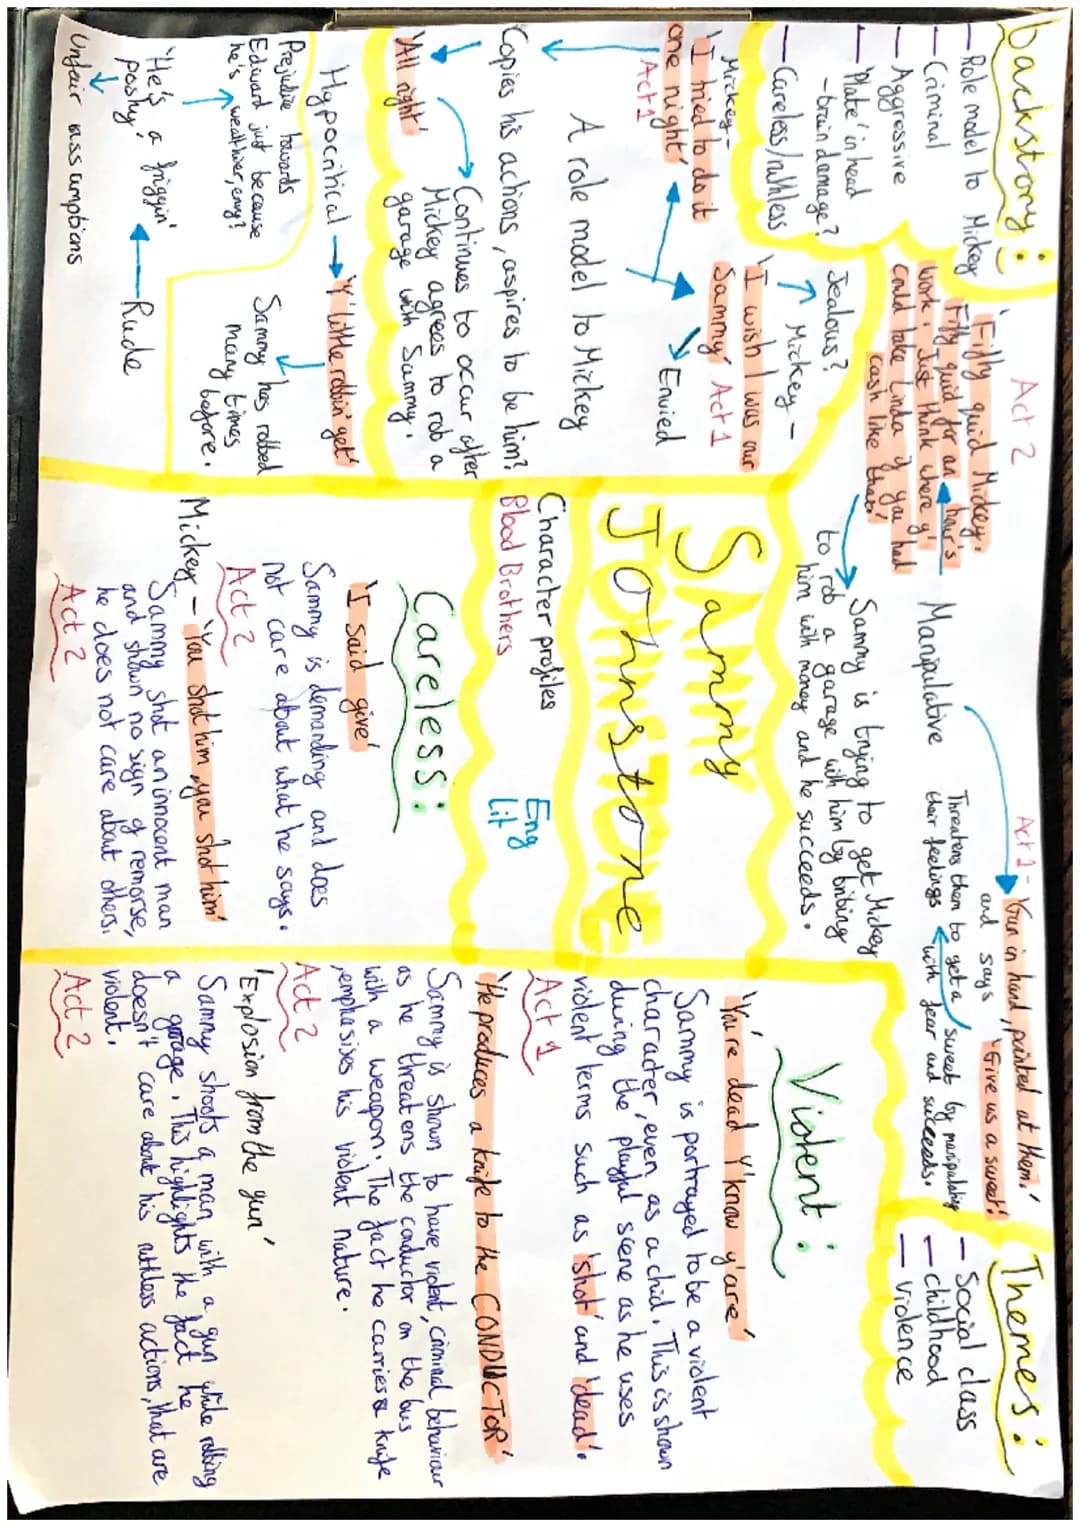 backstory:
— Role model to Mickey
— Criminal
— Aggressive
— 'Plate' in head
- brain damage?
— Careless/ruthless
Act 2
'Fifty quid Mickey.
Fifty quid for an hour's
work. Just think where y'
could take Linda if you had
cash like that.'
Manipulative
Sammy is trying to get Mickey
to rob a garage with him by bribing
to him with money and he succeeds.
Act 1 - 'Gun in hand, pointed at them.'
and says 'Give us a sweet!'
Threatens them to get a sweet by manipulating
their feelings with fear and succeeds.
Themes:
— Social class
— childhood
— Violence
Mickey-
'I tried to do it
one night'
Act 1
Jealous?
Mickey -
'I wish I was our
Sammy' Act 1
Envied
A role model to Mickey
Copies his actions, aspires to be him?
'All right'
Continues to occur after
Mickey agrees to rob a
garage with Sammy.
Hypocritical
'Y' little robbin' get'
Sammy has robbed
many times
before.
Prejudice towards
Edward just because
he's wealthier, envy?
'He's a friggin'
poshy,'
Rude
Unfair assumptions
Sammy
JOHNSTONE
Character profiles
Blood Brothers
Eng
Lit
Careless:
'I said give'
Sammy is demanding and does
not care about what he says.
Act 2
Mickey - 'You shot him, you shot him'
Sammy shot an innocent man
and shown no sign of remorse,
he does not care about others.
Act 2
Violent:
'You're dead y'know y'are'
Sammy is portrayed to be a violent
character, even as a child. This is shown
during the playful scene as he uses
violent terms such as 'shot' and 'dead'.
Act 1
'He produces a knife to the CONDUCTOR'
Sammy is shown to have violent, criminal behaviour
as he threatens the conductor on the bus
with a weapon. The fact he carries a knife
, emphasises his violent nature.
Act 2
'Explosion from the gun'
Sammy shoots a man with a gun while robbing
a garage. This highlights the fact he
doesn't care about his ruthless actions, that are
violent.
Act 2